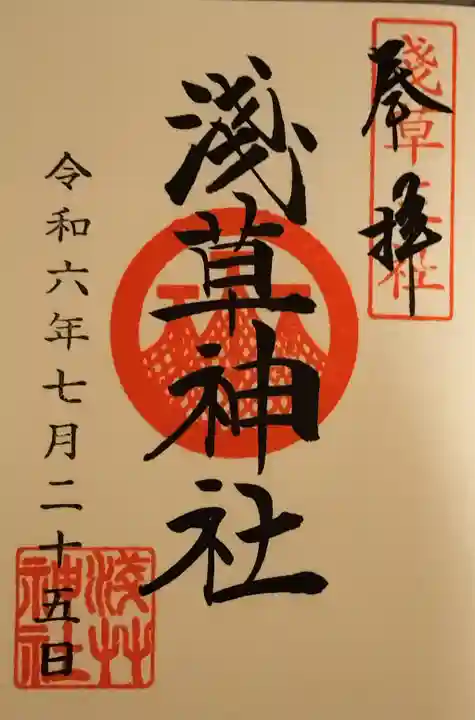 奉拝
淺草三社
淺草神社
令和六年七月二十五日
淺艸神社